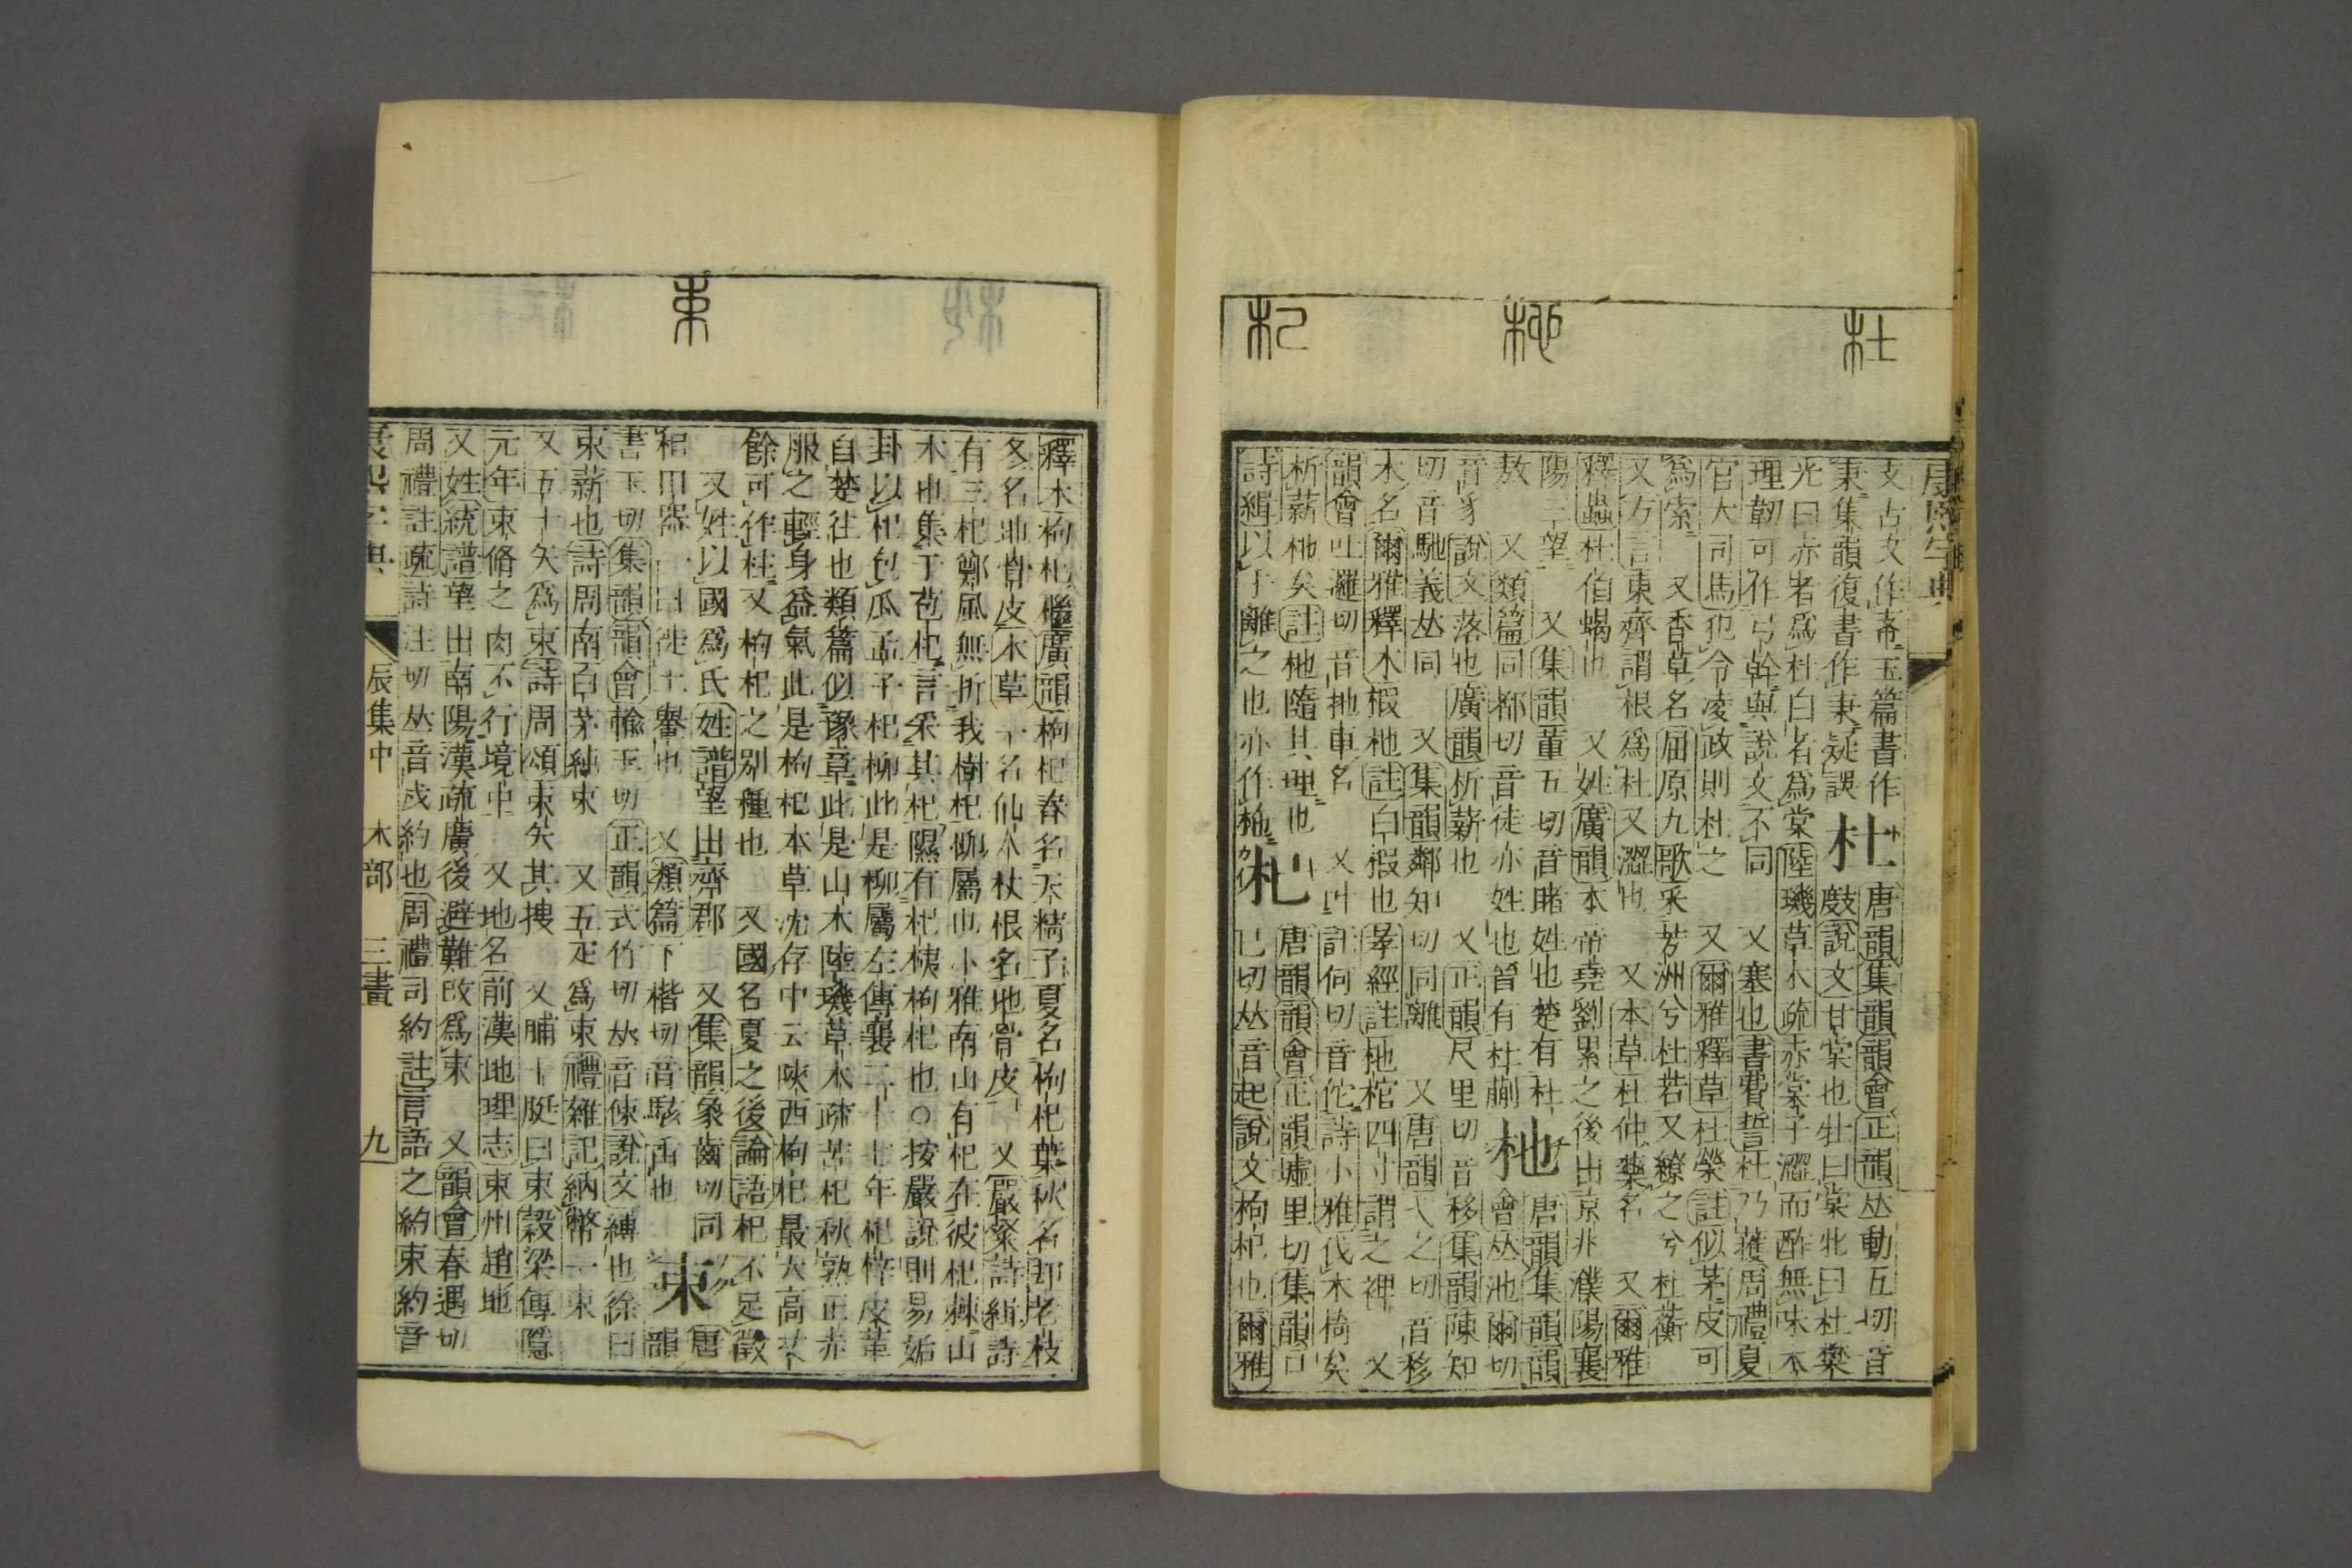 杜
杝
杞
支古文作𣏌玉篇書作
東集韻復書作耒疑誤 杜 唐韻集韻韻會正韻𠀤動五切音
𢾖說文甘棠也牡曰棠牝曰杜樊
光曰赤者爲杜白者爲棠陸璣草木疏赤棠子澀而酢無味木
理韌可作弓幹與說文不同 又塞也書費誓杜乃擭周禮夏
官大司馬犯令凌政則杜之 又爾雅釋草杜榮註似茅皮可
爲索 又香草名屈原九歌采芳洲兮杜若又繚之兮杜蘅
又方言東齊謂根爲杜又澀也 又本草杜仲藥名 又爾雅
釋蟲杜伯蝎也 又姓廣韻本帝堯劉累之後出京兆濮陽襄
陽三望 又集韻董五切音睹姓也楚有杜
敖 又類篇同都切音徒亦姓也晉有杜蒯 杝 唐韻集韻韻
會𠀤池爾切
音豸說文落也廣韻析薪也 又正韻尺里切音移集韻陳知
切音馳義𠀤同 又集韻鄰知切同離 又唐韻弋之切音移
木名爾雅釋木椵杝註白椵也孝經註杝棺四寸謂之椑 又
韻會吐邏切音拖車名 又叶許何切音佗詩小雅伐木掎矣
析薪杝矣註杝隨其理也 杞 唐韻韻會正韻墟里切集韻口
詩緝以手離之也亦作柂 巳切𠀤音起說文枸杞也爾雅
束
釋木枸杞檵廣韻枸杞春名天精子夏名枸杞葉秋名却老枝
冬名地骨皮本草一名仙人杖根名地骨皮 又嚴粲詩緝詩
有三杞鄭風無折我樹杞柳屬也小雅南山有杞在彼杞棘山
木也集于苞杞言采其杞隰有杞桋枸杞也○按嚴說則易姤
卦以杞包瓜孟子杞柳此是柳屬左傳襄二十七年杞梓皮革
自楚往也類篇似豫章此是山木陸璣草木疏苦杞秋熟正赤
服之輕身益氣此是枸杞本草沈存中云陝西枸杞最大高丈
餘可作柱又枸杞之別種也 又國名夏之後論語杞不足徵
又姓以國爲氏姓譜望出齊郡 又集韻象齒切同
梠田器一曰徙土轝也 又類篇下楷切音駭臿也 束 唐
韻
書玉切集韻韻會輸玉切正韻式竹切𠀤音倲說文縛也徐曰
束薪也詩周南白茅純束 又五疋爲束禮雜記納幣一束
又五十矢爲束詩周頌束矢其搜 又脯十脡曰束穀梁傳隱
元年束脩之肉不行境中 又地名前漢地理志束州趙地
又姓統譜望出南陽漢疏廣後避難改爲束 又韻會春遇切
周禮註疏詩注切𠀤音戍約也周禮司約註言語之約束約音
康熙字典 辰集中 木部 三畫 九